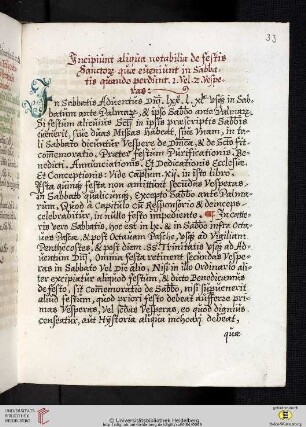 33
Incipiunt aliqua notabilia de festis
Sanctorz quæ eueniunt in Sabba-
tis quando perdunt. 1. Vel. 2. Vespe-
ras:
In Sabbatis Aduentus Dñi. lxx. l. xl. vsq; in Sab-
batum ante Palmarz. & ipso Sabbo ante Palmarz.
Si festum alicuius Scti in ipsis prescriptis Sabbis
euenerit, siue duas Missas habeat, siue Vnam, in ta-
li Sabbato dicentur Vespere de Dnica, & de Scto fit
comemoratio. Preter festum Purificationis, Be-
nedicti, Annunciationis, Et Dedicationis Ecclesiæ,
Et Conceptionis: Vide Caplum. xij. in isto libro.
Ista quinq; festa non amittunt secundas Vesperas,
in Sabbato qualicunq;, Excepto Sabbo ante Palma-
rum, Quod a Capitulo cū Responsorio & deinceps
celebrabitur, in nullo festo impediente. In cæte-
ris vero Sabbatis, hoc est in lx. & in Sabbo infra Octa-
uas Pasca, & post Octauam Pasche, vsq; ad Vigiliam
Penthecostes, & post diem SS. Trinitatis vsq; ad Ad-
uentum Dñi, Omnia festa retinent secundas Vespe-
ras in Sabbato Vel Die alio, Nisi in isto Ordinario ali-
ter excipiatur aliquod festum, & dicto Benedicamus
de festo, sit Comemoratio de Sabbo, nisi superuenerit
aliud festum, quod priori festo debeat aufferre pri-
mas Vesperas, Vel secdas Vesperas, eo quod dignius
censeatur, aut Hystoria aliqua inchoari debeat,
quæ
UNIVERSITÄTS-
BIBLIOTHEK
HEIDELBERG
© Universitätsbibliothek Heidelberg